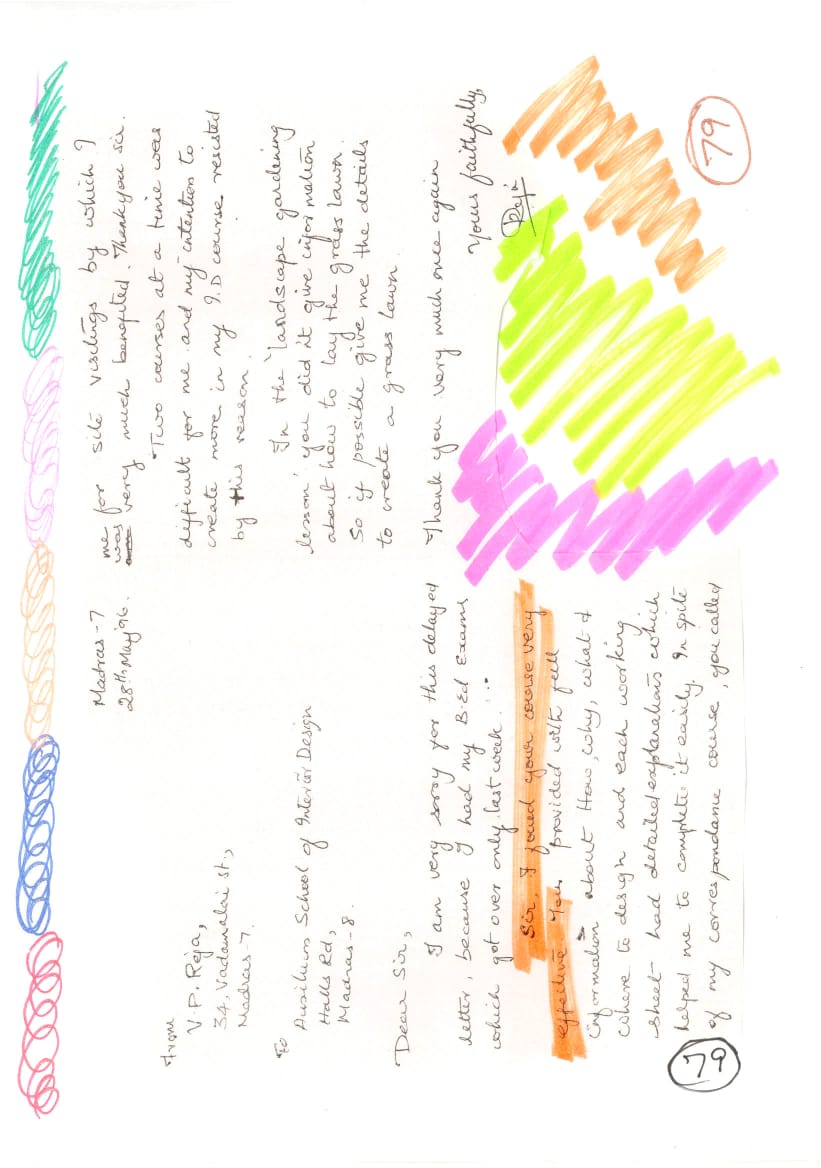 Madras-7
28th May '96.
From
V.P. Reja,
34, Vadamalai st.,
Madras-7.
To
Auxilium School of Interior Design
Halls Rd,
Madras-8.
Dear Sir,
I am very sorry for this delayed
letter, because I had my B.Ed Exams
which got over only last week...
Sir, I found your course very
effective You provided with full
information about How, why, what &
where to design and each working
sheet had detailed explanations which
helped me to complete it easily. In spite
of my correspondance course, you called
79
me for site visitings by which I
was very much benefited. Thankyou sir.
Two courses at a time was
difficult for me and my intention to
create more in my I.D course resisted
by this reason.
In the 'landscape gardening
lesson' you did it give information
about how to lay the grass lawn.
So if possible give me the details
to create a grass lawn.
Thank you very much once again
Yours faithfully,
Reja
79